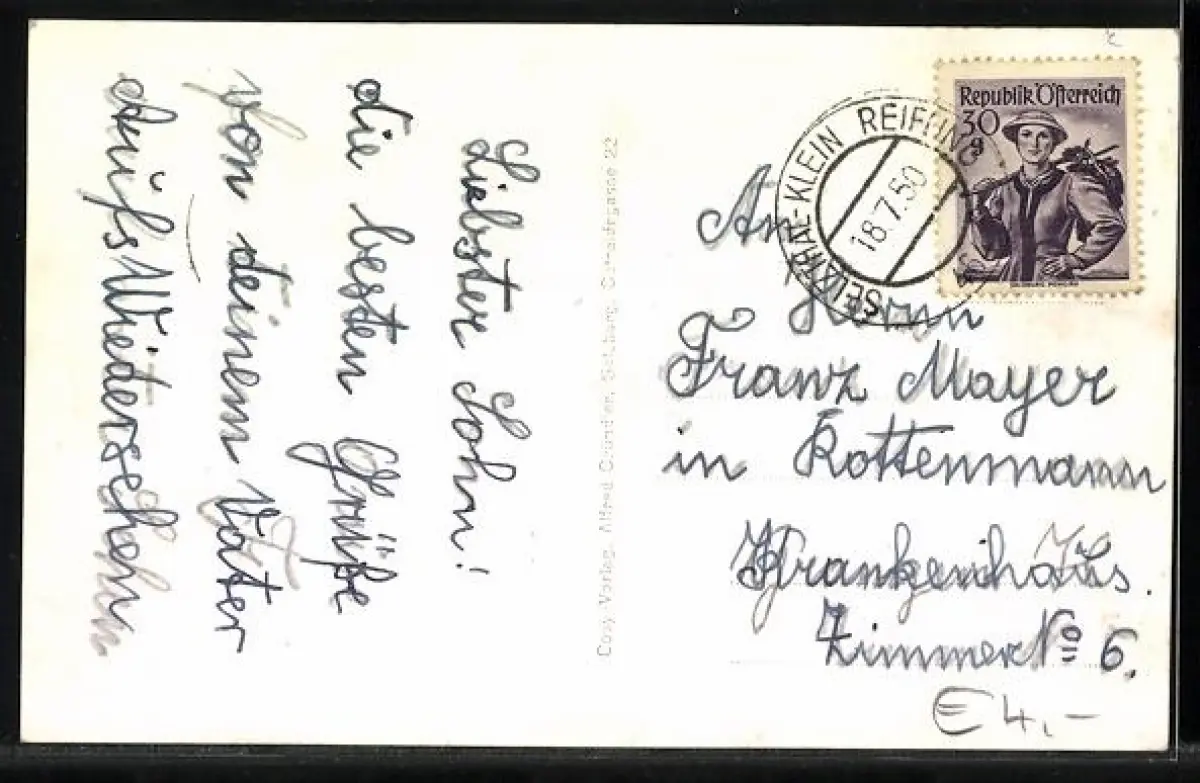 Liebster Sohn!
die besten Grüße
von deinem Vater
Aufs Wiedersehen
Cosy-Verlag, Alfred Gründler, Salzburg, 22
SELZTHAL-KLEIN REIFLING
18.7.50
Republik Österreich
30
g
An
Herrn
Franz Mayer
in Rottenmann
Krankenhaus.
Zimmer No 6.
E 4.-